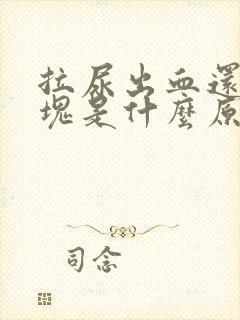 拉尿出血還
塊是什麼原
司念